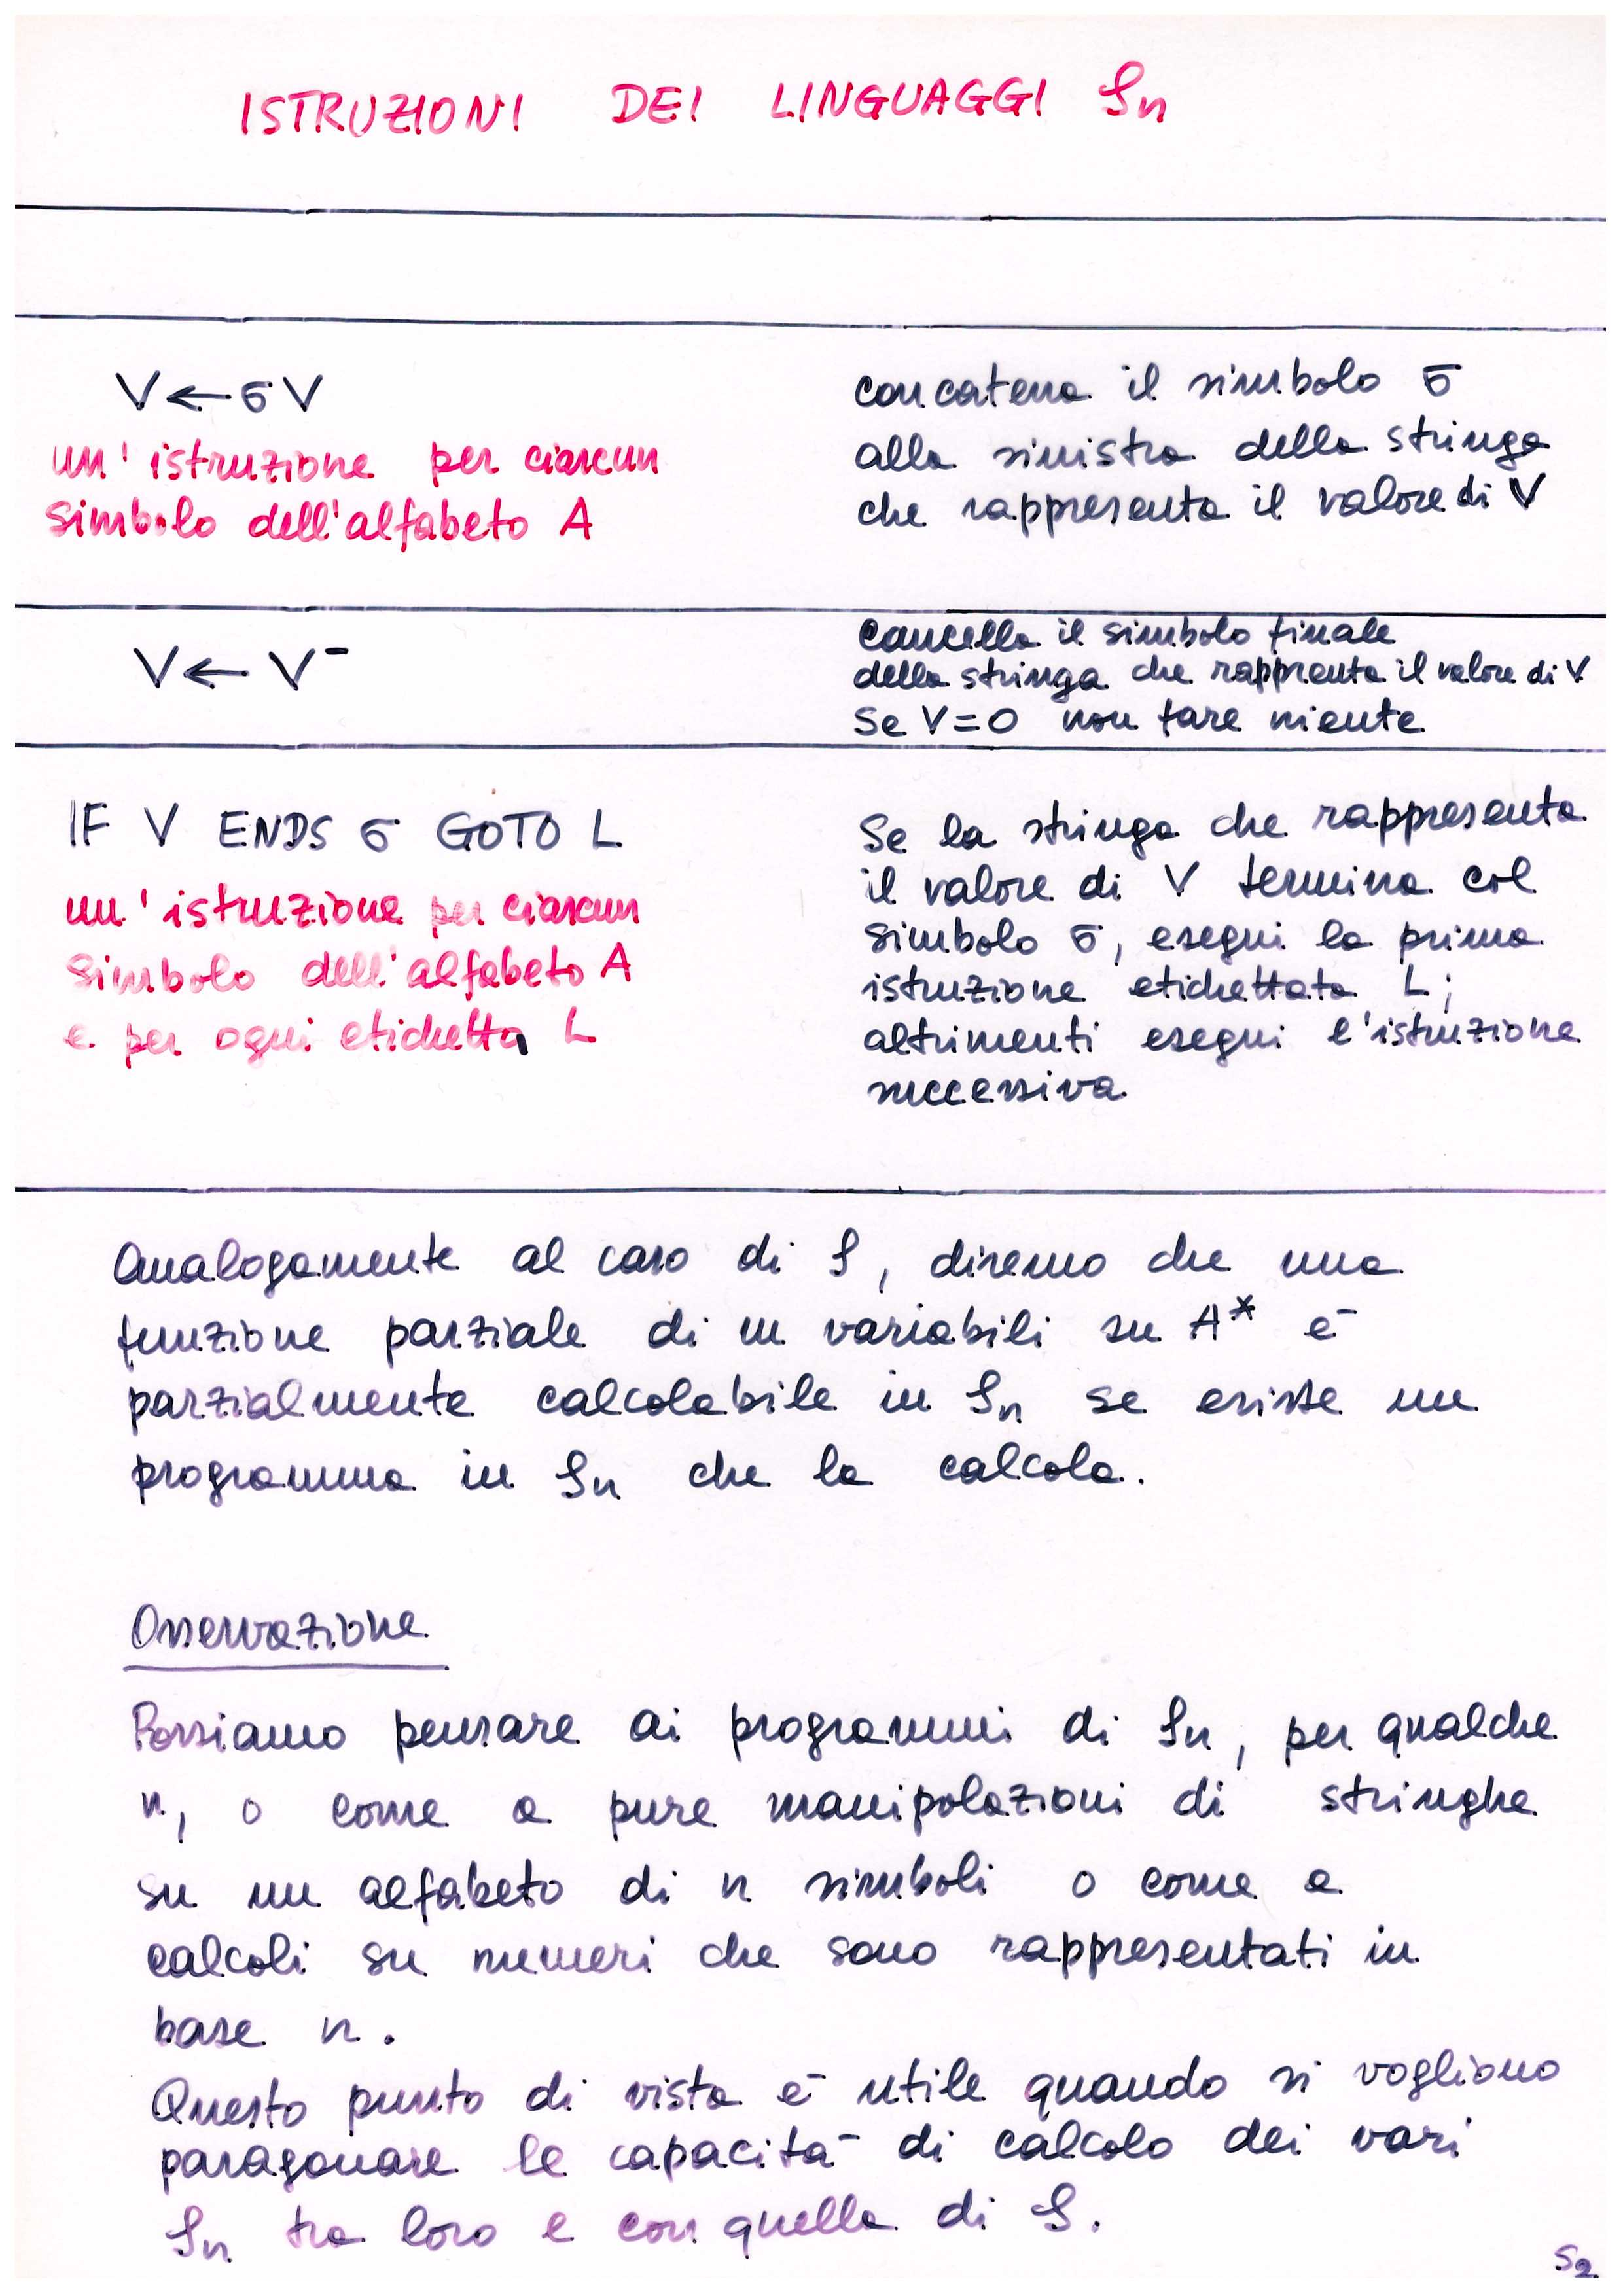 ISTRUZIONI DEI LINGUAGGI Sn
V ← σ V
un' istruzione per ciascun
simbolo dell'alfabeto A
concatena il simbolo σ
alla sinistra della stringa
che rappresenta il valore di V
V ← V⁻
cancella il simbolo finale
della stringa che rappresenta il valore di V
Se V=0 non fare niente
IF V ENDS σ GOTO L
un' istruzione per ciascun
simbolo dell'alfabeto A
e per ogni etichetta L
Se la stringa che rappresenta
il valore di V termina col
simbolo σ, esegui la prima
istruzione etichettata L;
altrimenti esegui l'istruzione
successiva
Analogamente al caso di S, diremo che una
funzione parziale di m variabili su A* è
parzialmente calcolabile in Sn se esiste un
programma in Sn che la calcola.
Osservazione
Possiamo pensare ai programmi di Sn, per qualche
n, o come a pure manipolazioni di stringhe
su un alfabeto di n simboli o come a
calcoli su numeri che sono rappresentati in
base n.
Questo punto di vista è utile quando si vogliono
paragonare le capacità di calcolo dei vari
Sn tra loro e con quella di S.
S2